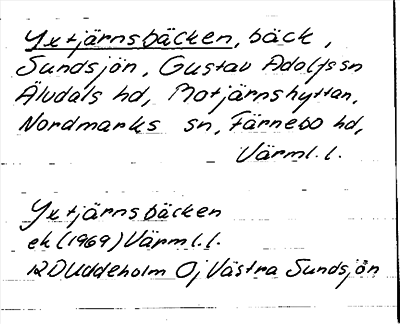 Yxtjärnsbäcken, bäck,
Sundsjön, Gustav Adolfs sn
Älvdals hd, Motjärnshyttan,
Nordmarks sn, Färnebo hd,
Värml. l.
Yxtjärnsbäcken
ek (1969) Värml. l.
12D Uddeholm 0j Västra Sundsjön